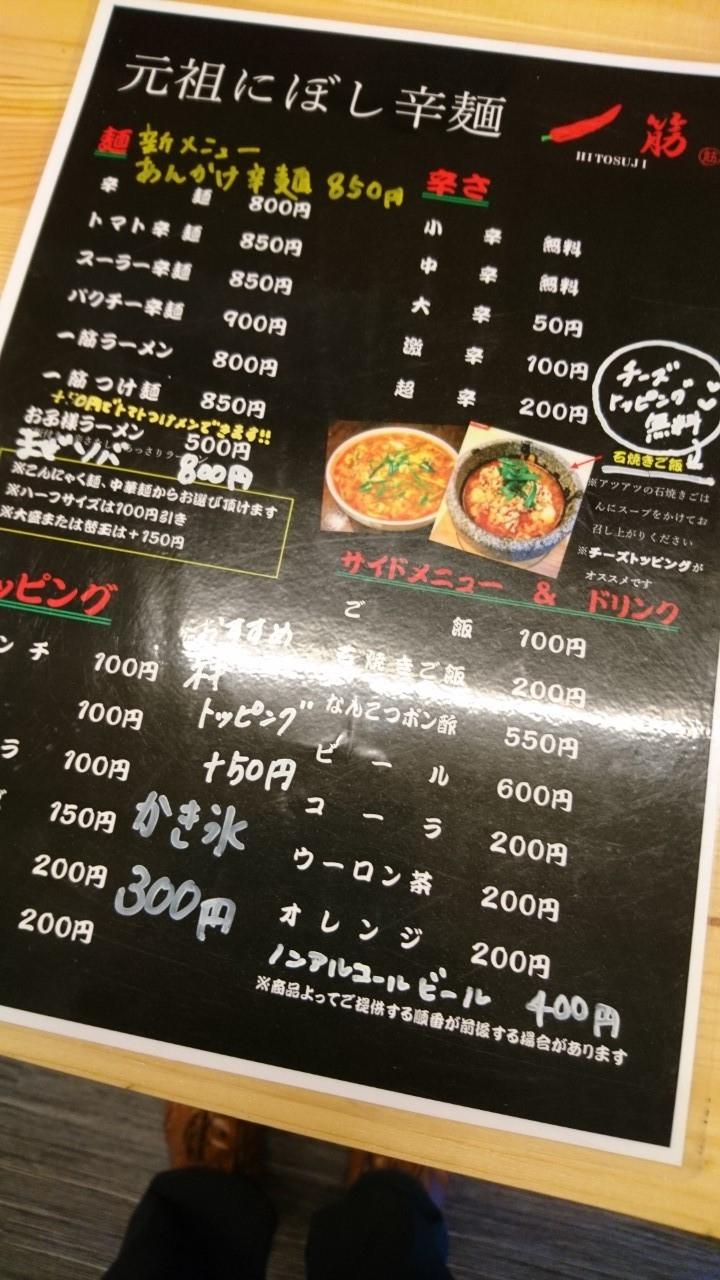 元祖にぼし辛麺
一筋
HITOSUJI
麺 新メニュー
あんかけ辛麺 850円
辛麺 800円
トマト辛麺 850円
スーラー辛麺 850円
パクチー辛麺 900円
一筋ラーメン 800円
一筋つけ麺 850円
+50円でトマトつけメンできます!!
お子様ラーメン 500円
まぜソバ 800円
※こんにゃく麺、中華麺からお選び頂けます
※ハーフサイズは100円引き
※大盛または替玉は+150円
辛さ
小辛 無料
中辛 無料
大辛 50円
激辛 100円
超辛 200円
チーズ
トッピング
無料
石焼きご飯
※アツアツの石焼きごは
んにスープをかけてお
召し上がりください
※チーズトッピングが
オススメです
ッピング
ンチ 100円
100円
ラ 100円
150円
200円
200円
おすすめ
トッピング
+50円
かき氷
300円
サイドメニュー & ドリンク
ご飯 100円
石焼きご飯 200円
なんこつポン酢 550円
ビール 600円
コーラ 200円
ウーロン茶 200円
オレンジ 200円
ノンアルコールビール 400円
※商品よってご提供する順番が前後する場合があります